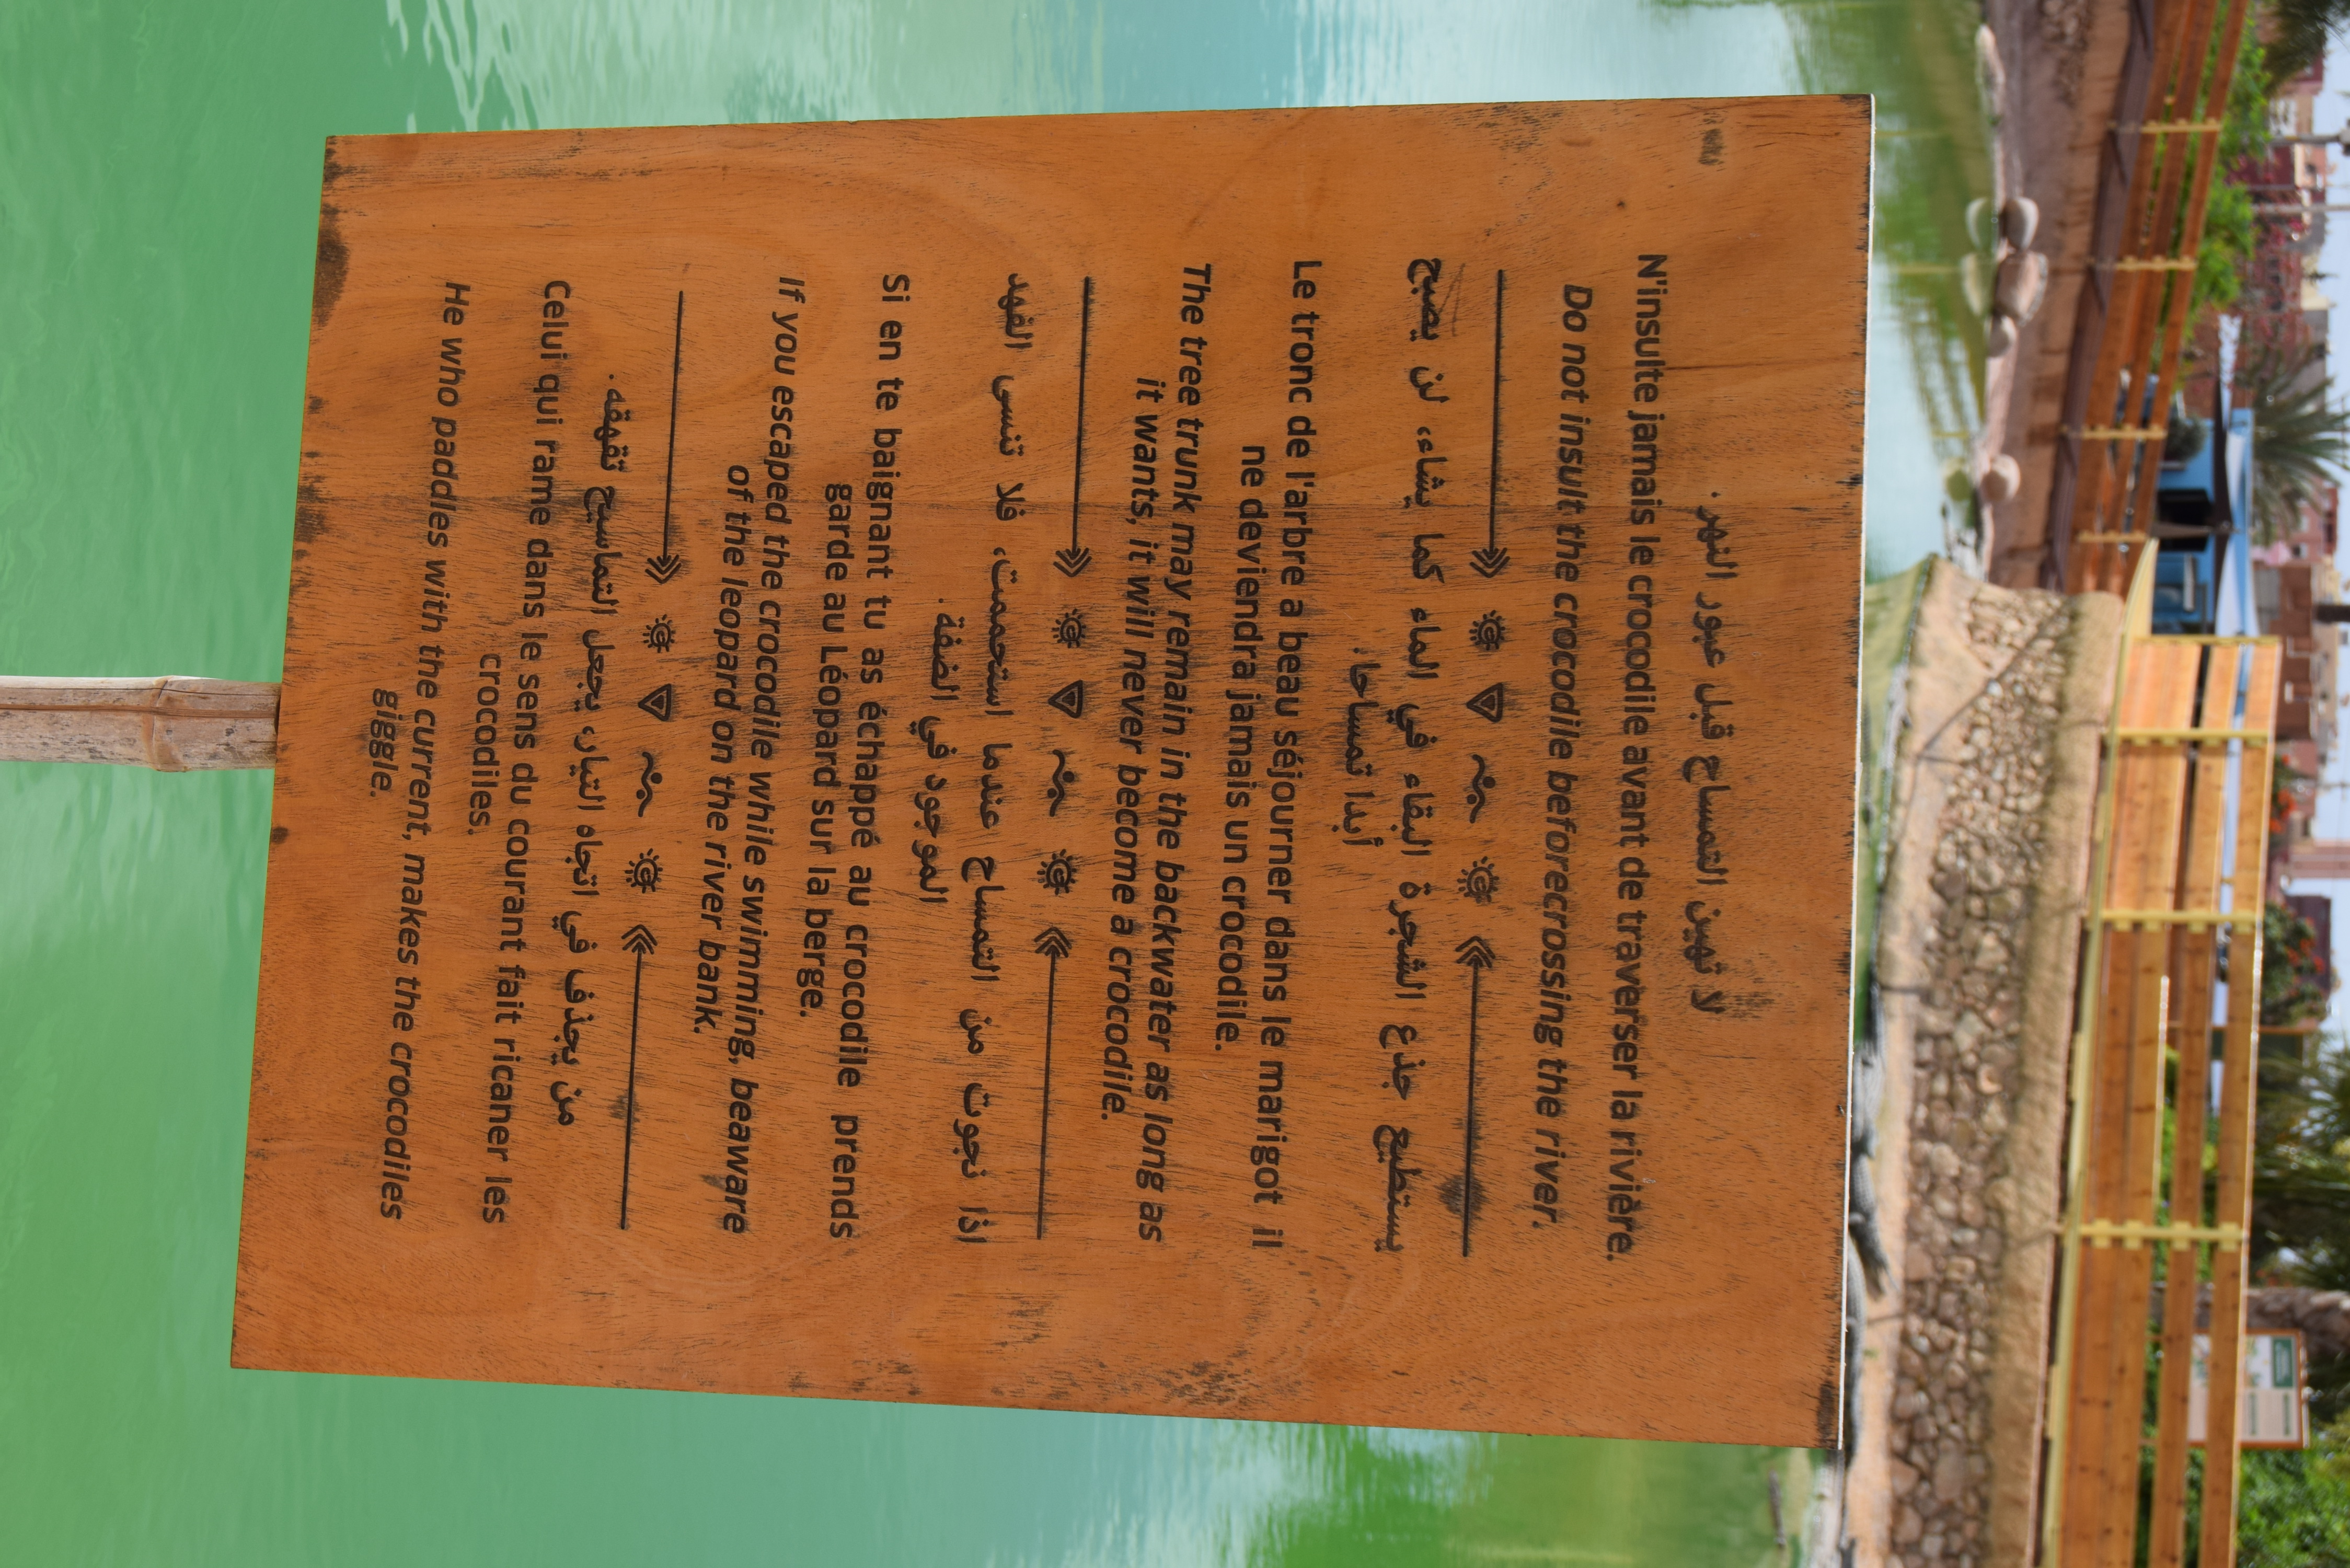 لا تهين التمساح قبل عبور النهر.
N'insulte jamais le crocodile avant de traverser la rivière.
Do not insult the crocodile beforecrossing the river.
يستطيع جذع الشجرة البقاء في الماء كما يشاء، لن يصبح
أبدا تمساحا.
Le tronc de l'arbre a beau séjourner dans le marigot il
ne deviendra jamais un crocodile.
The tree trunk may remain in the backwater as long as
it wants, it will never become a crocodile.
اذا نجوت من التمساح عندما استحممت، فلا تنسى الفهد
الموجود في الضفة.
Si en te baignant tu as échappé au crocodile prends
garde au Léopard sur la berge.
If you escaped the crocodile while swimming, beaware
of the leopard on the river bank.
من يجذف في اتجاه التيار، يجعل التماسيح تقهقه.
Celui qui rame dans le sens du courant fait ricaner les
crocodiles.
He who paddles with the current, makes the crocodiles
giggle.